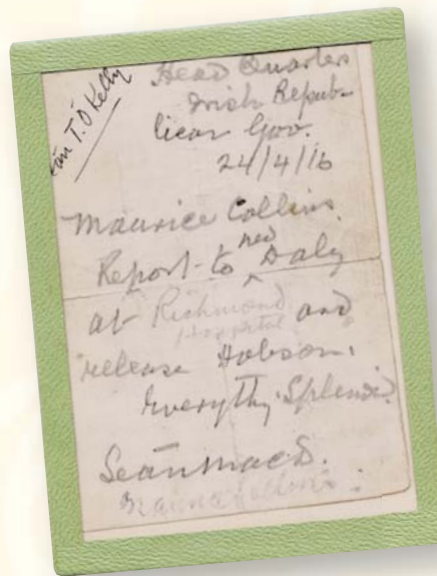 Seán T. Ó Kelly
Head Quarters
Irish Repub-
lican Gov.
24/4/16
Maurice Collins
Report to ned Daly
at Richmond and
Hospital
release Hobson.
Everythg Splendid
Seán MacD.